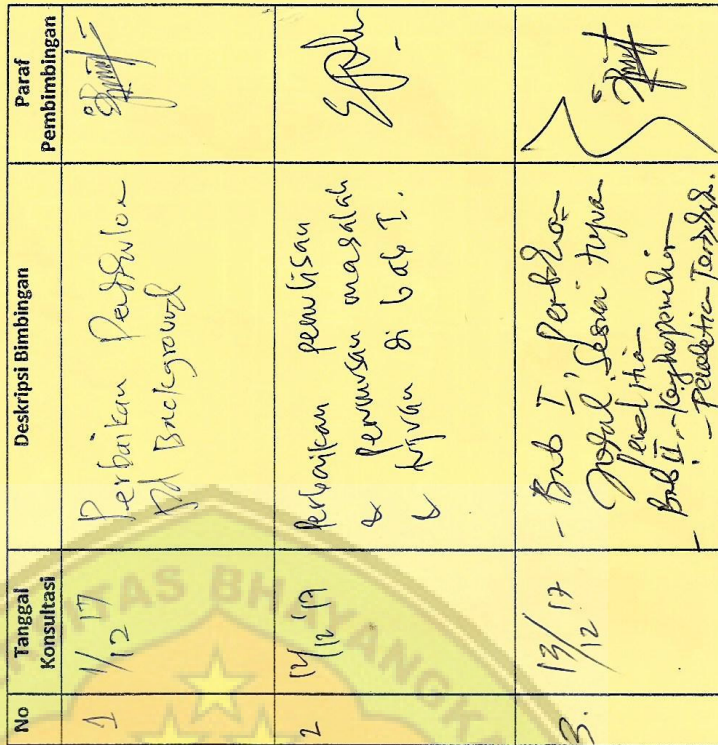 No
Tanggal Konsultasi
Deskripsi Bimbingan
Paraf Pembimbingan
1
1/12 17
Perbaikan
pd Background
2
12/12 '17
Perbaikan penulisan
& perumusan masalah
& tujuan di bab I.
3.
13/12 17
- Bab I, Perbaikan
sesuai tujuan
- Bab II,
- Penelitian Terdahulu.